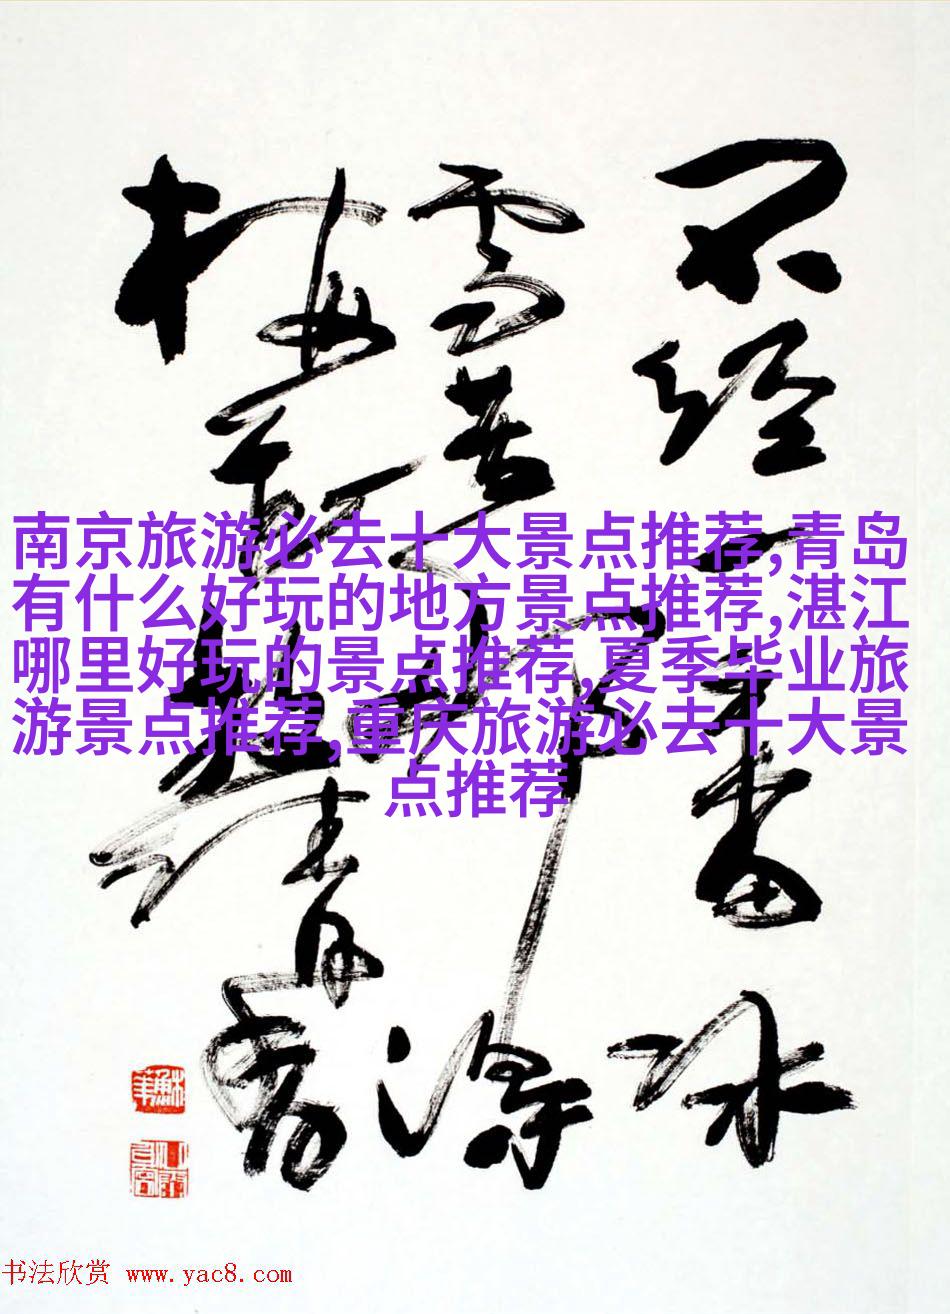 不经一番冰
雪苦那得
梅花清香
南京旅游必去十大景点推荐,青岛
有什么好玩的地方景点推荐,湛江
哪里好玩的景点推荐,夏季毕业旅
游景点推荐,重庆旅游必去十大景
点推荐
书法欣赏 www.yac8.com